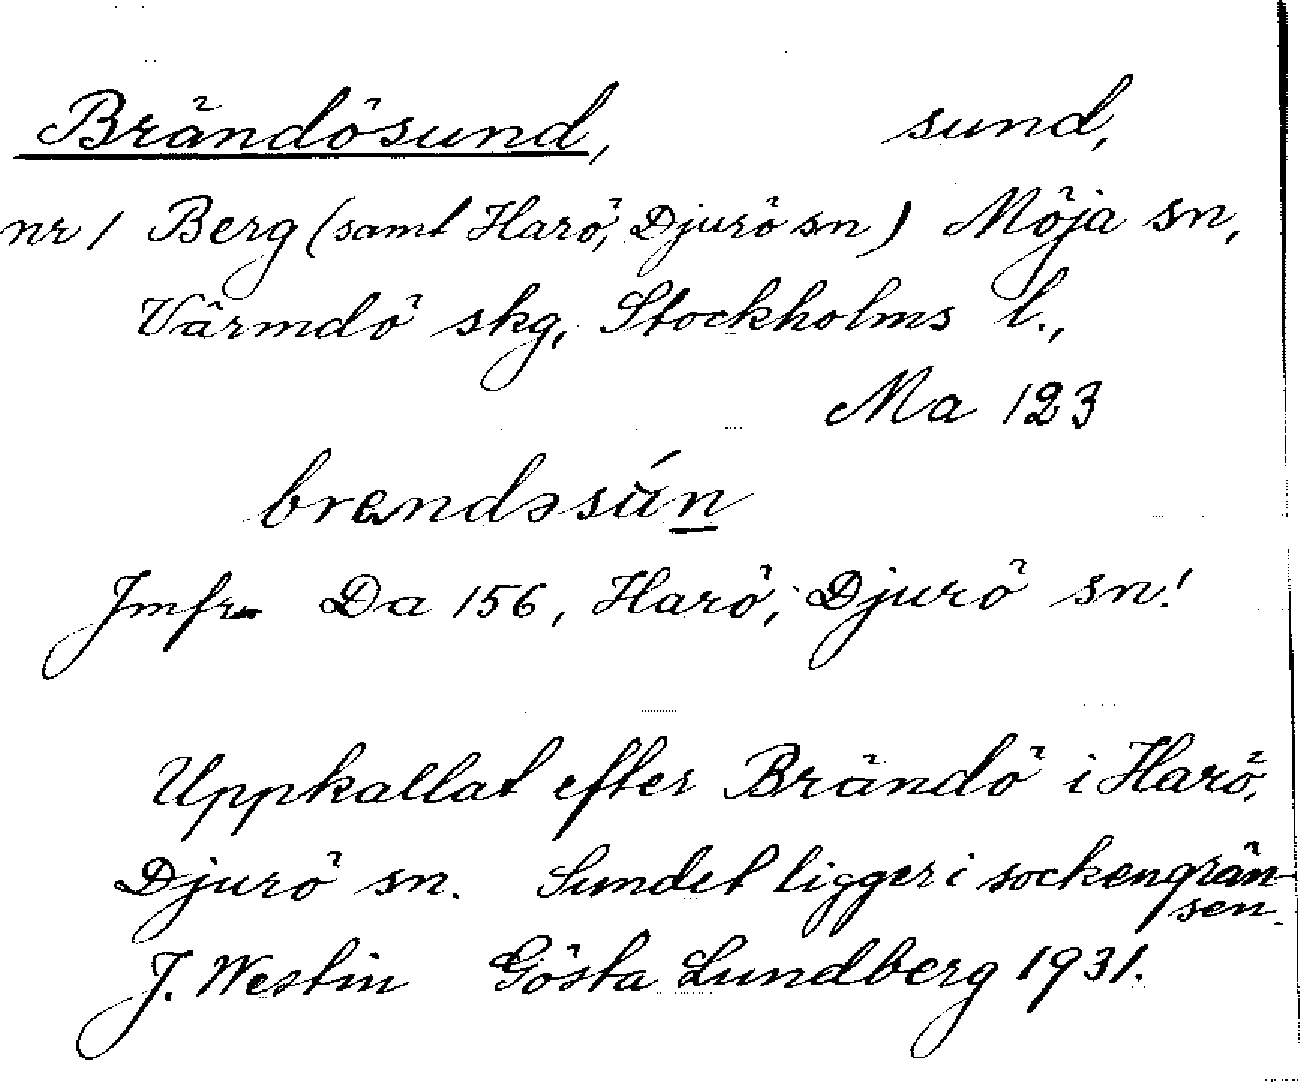 Brändösund, sund,
nr 1 Berg (samt Harö, Djurö sn) Möja sn,
Värmdö skg, Stockholms l.,
Ma 123
brændəsún
Jmfr Da 156, Harö, Djurö sn!
Uppkallat efter Brändö i Harö,
Djurö sn. Sundet ligger i sockengrän-
sen.
J. Westin Gösta Lundberg 1931.